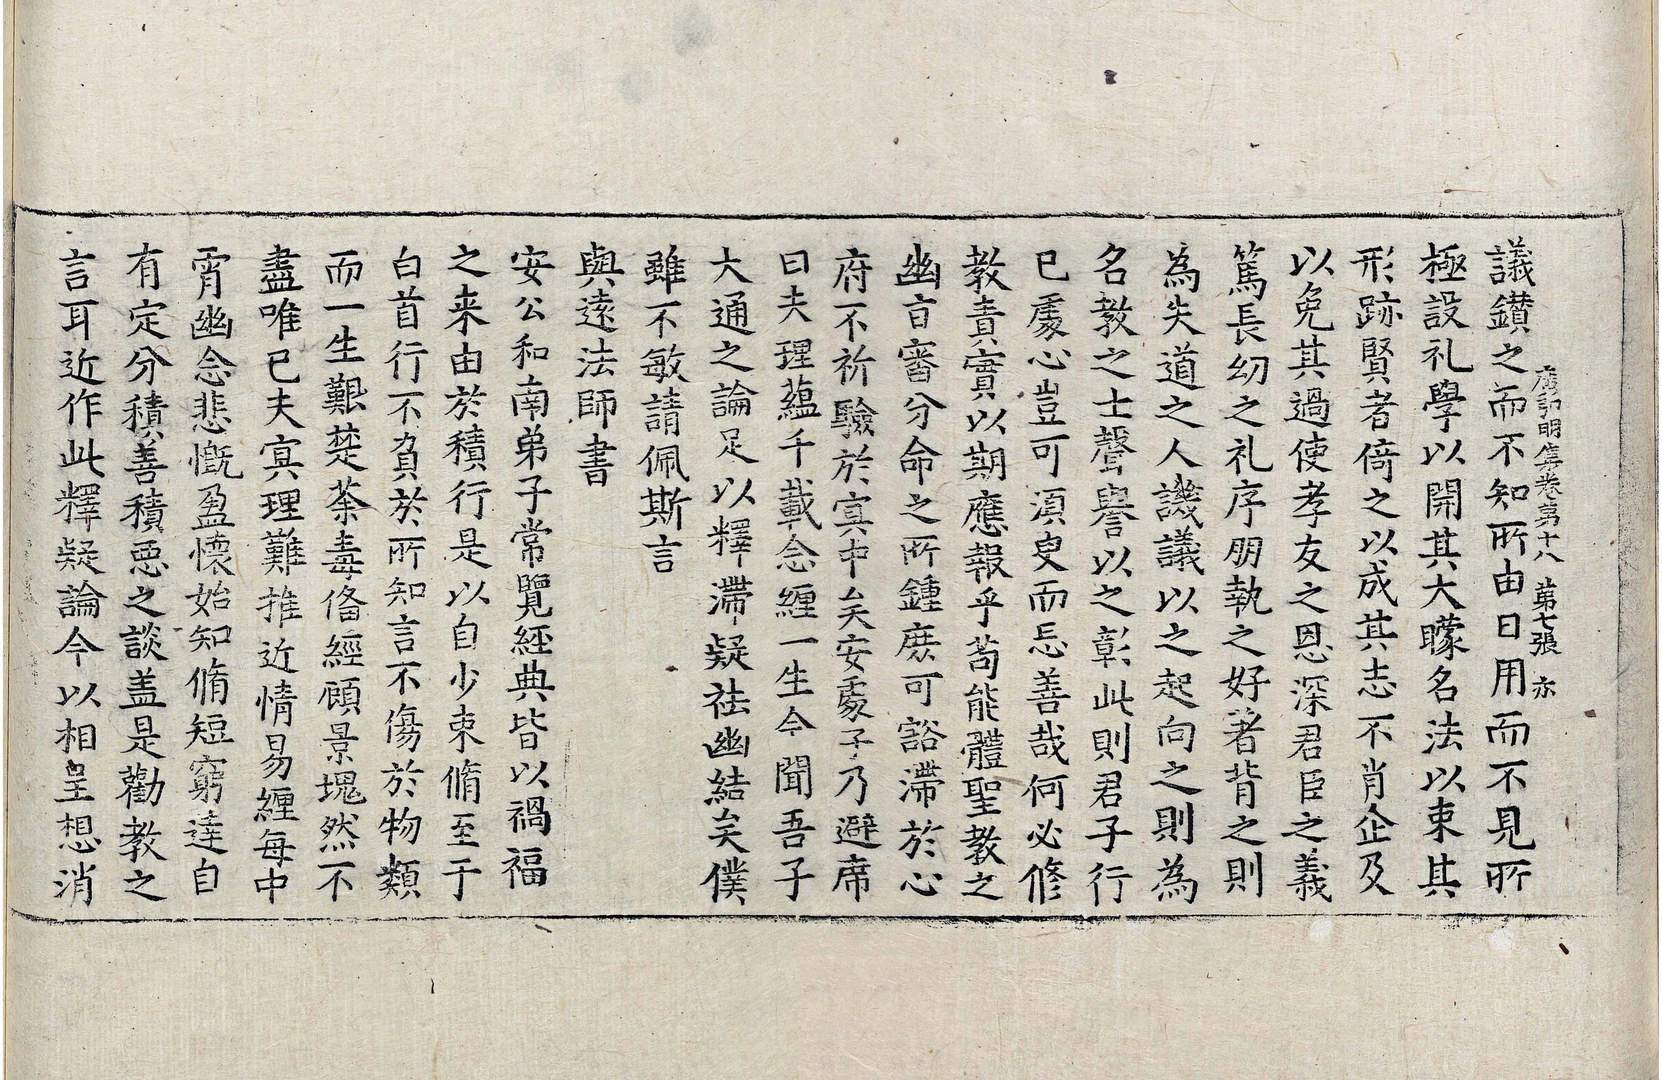 廣弘明集卷第十八 第七張 亦
議鑚之而不知所由日用而不見所
極設礼學以開其大矇名法以束其
形跡賢者倚之以成其志不肖企及
以免其過使孝友之恩深君臣之義
篤長幼之礼序朋執之好著背之則
為失道之人譏議以之起向之則為
名教之士聲譽以之彰此則君子行
已處心豈可須臾而忘善哉何必修
教責實以期應報乎苟能體聖教之
幽旨審分命之所鍾庶可豁滯於心
府不祈驗於冥中矣安處子乃避席
曰夫理蘊千載念纏一生今聞吾子
大通之論足以釋滯疑祛幽結矣僕
雖不敏請佩斯言
與遠法師書
安公和南弟子常覽經典皆以禍福
之来由於積行是以自少束脩至于
白首行不負於所知言不傷於物類
而一生艱楚荼毒俻經顧景塊然不
盡唯已夫冥理難推近情易纏每中
霄幽念悲慨盈懷始知脩短窮達自
有定分積善積惡之談盖是勸教之
言耳近作此釋疑論今以相呈想消